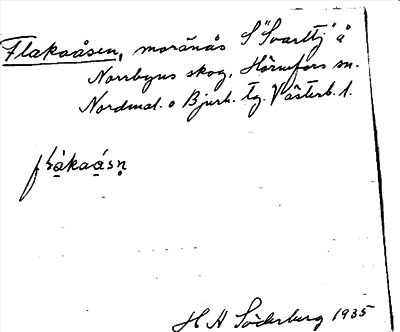 Flakaåsen, moränås S "Svarttj" å
Norrbyns skog, Hörnefors sn.
Nordmal. o Bjurh. tg. Västerb. l.
flàkaásn̥
H A Söderberg 1935